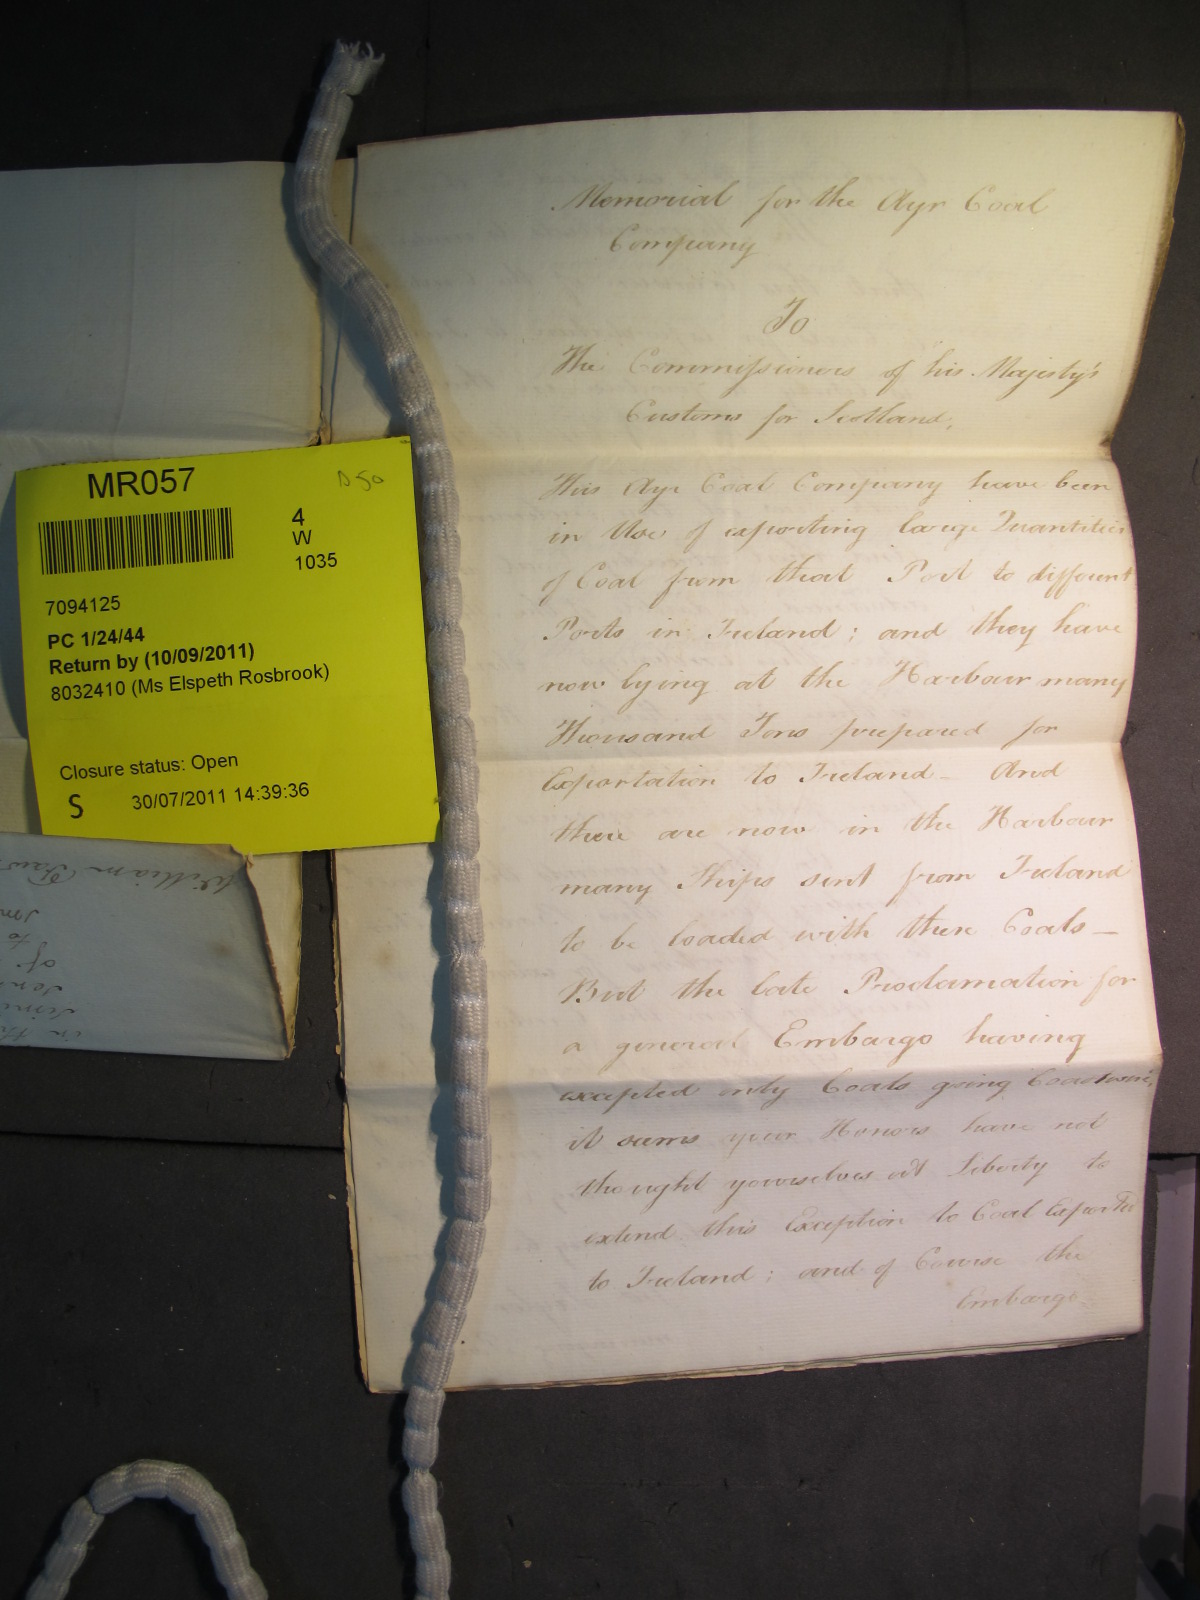 MR057
D50
4
W
1035
7094125
PC 1/24/44
Return by (10/09/2011)
8032410 (Ms Elspeth Rosbrook)
Closure status: Open
S 30/07/2011 14:39:36
William
of
to
Memorial for the Ayr Coal
Company
To
The Commissioners of his Majesty's
Customs for Scotland,
This Ayr Coal Company have been
in Use of exporting large Quantities
of Coal from that Port to different
Ports in Ireland; and they have
now lying at the Harbour many
Thousand Tons prepared for
Exportation to Ireland - And
there are now in the Harbour
many Ships sent from Ireland
to be loaded with these Coals -
But the late Proclamation for
a general Embargo having
excepted only Coals going Coastwise,
it seems your Honors have not
thought yourselves at Liberty to
extend this Exception to Coal Exported
to Ireland; and of Course the
Embargo